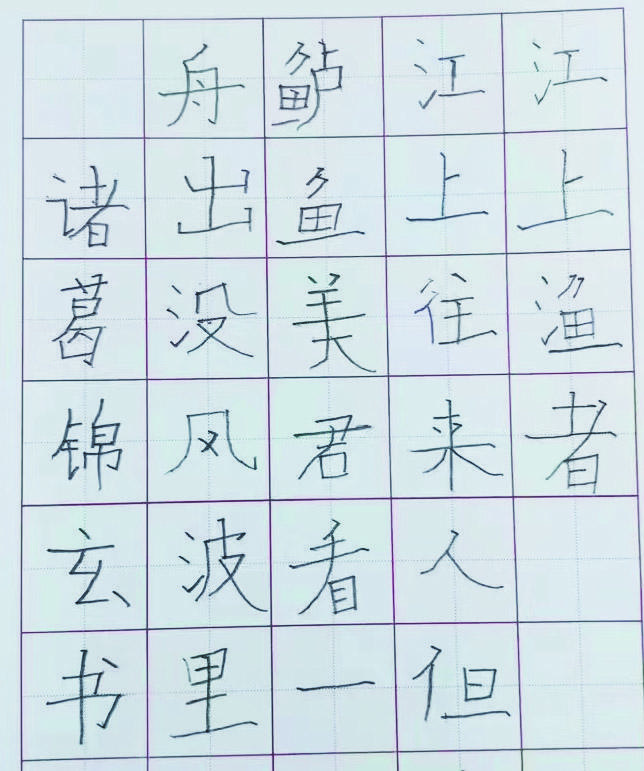 江上渔者
江上往来人但
鲈鱼美君看一
舟出没风波里
诸葛锦玄书